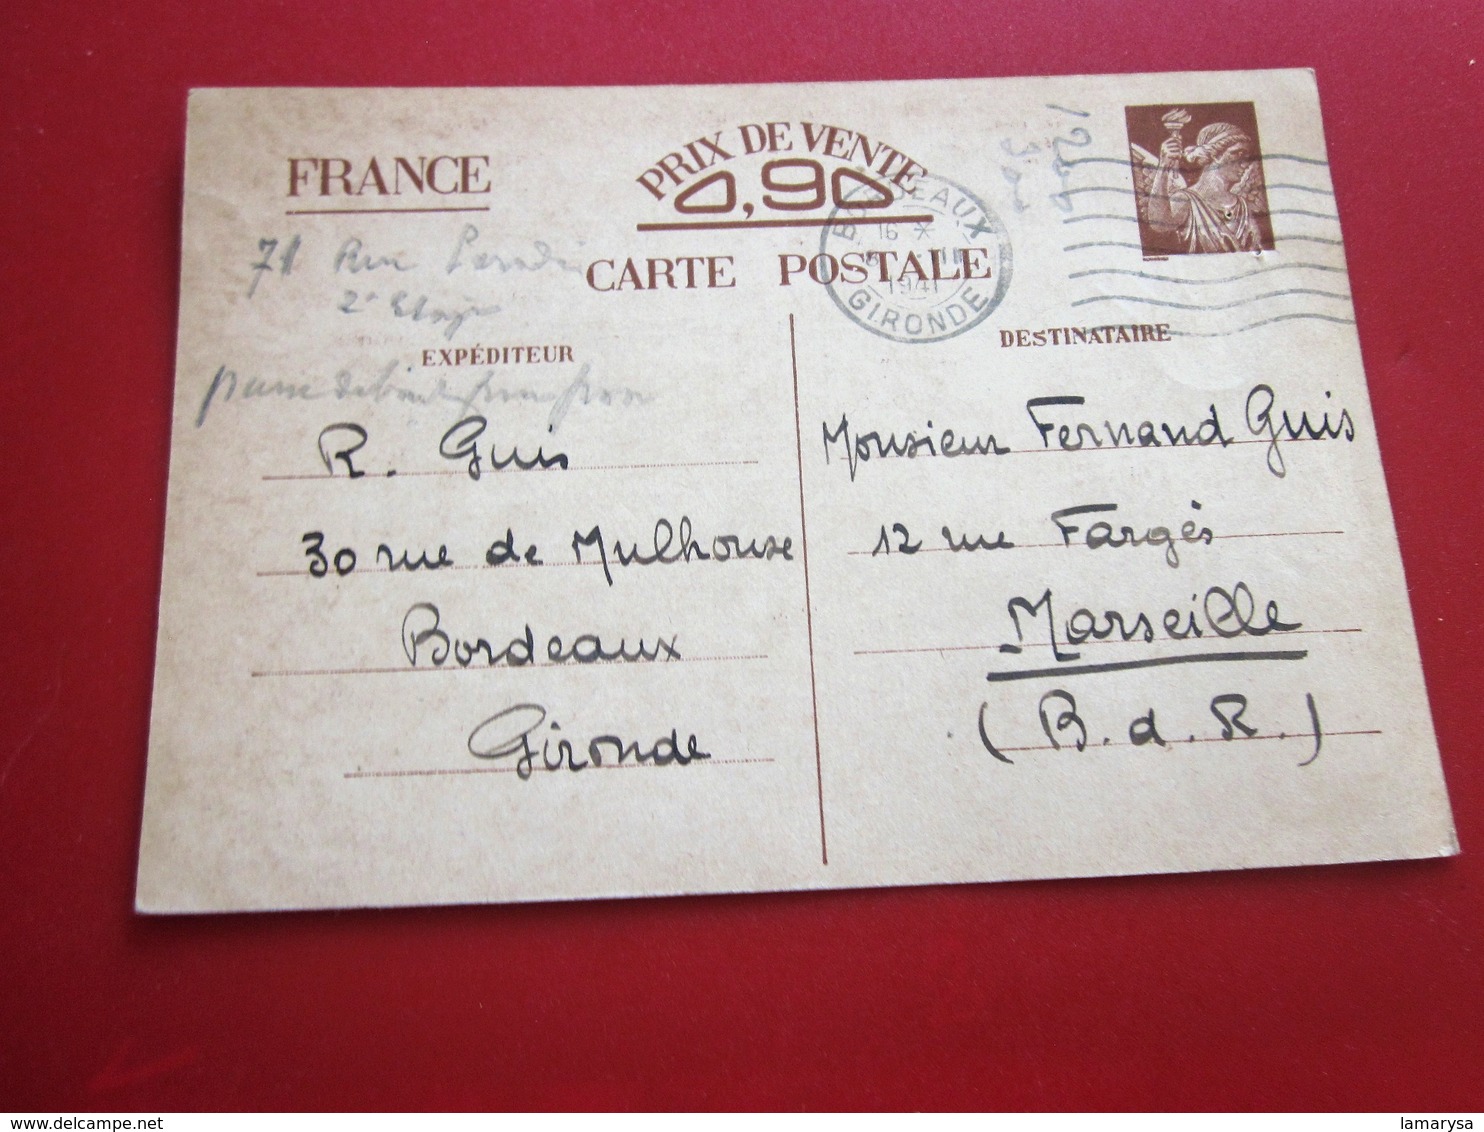 FRANCE
PRIX DE VENTE
0,90
CARTE POSTALE
BORDEAUX
16 *
1941
GIRONDE
71 Rue
2e Etage
EXPÉDITEUR
R. Guis
30 rue de Mulhouse
Bordeaux
Gironde
DESTINATAIRE
Monsieur Fernand Guis
12 rue Fargès
Marseille
(B.d.R.)
delcampe.net
lamarysa